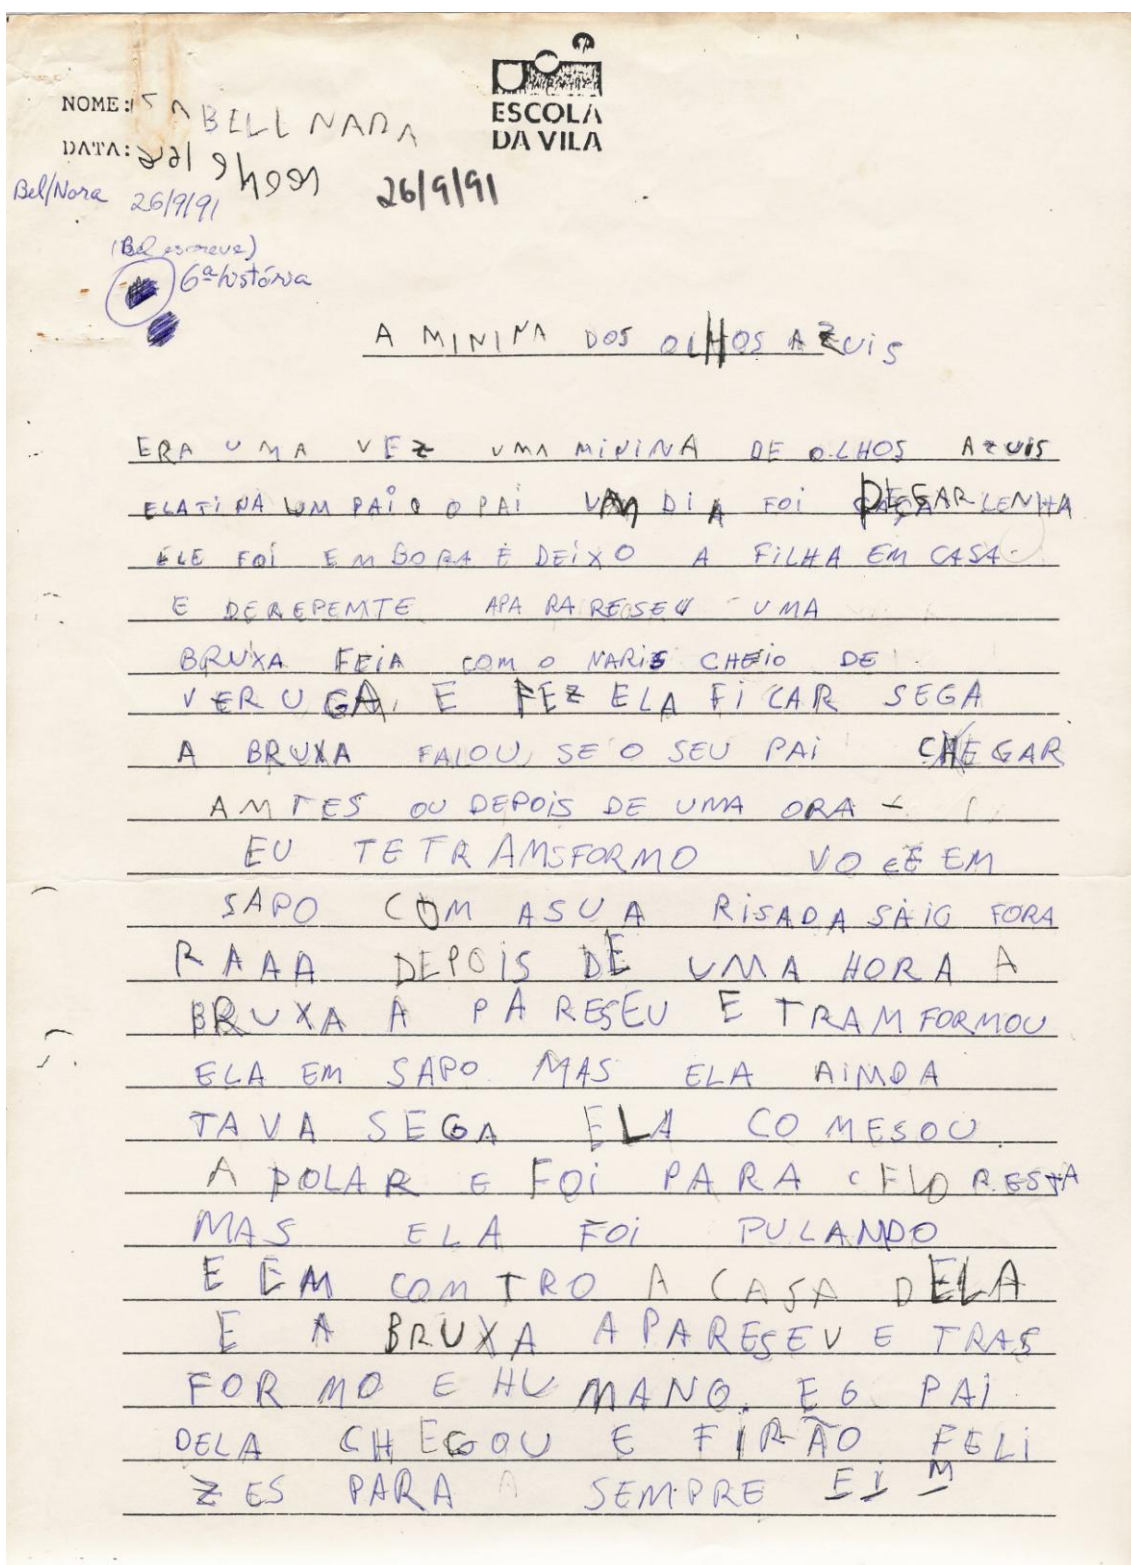 ESCOLA
DA VILA
NOME: ISABELL NARA
DATA:
Bel/Nara 26/9/91
26/9/91
(Bel escreve)
6ª história
A MININA DOS OLHOS AZUIS
ERA UMA VEZ UMA MININA DE OLHOS AZUIS
ELA TINA UM PAI O PAI UM DIA FOI PEGAR LENHA
ELE FOI EMBORA E DEIXO A FILHA EM CASA
E DEREPEMTE APARARESEU UMA
BRUXA FEIA COM O NARIS CHEIO DE
VERUGA E FEZ ELA FICAR SEGA
A BRUXA FALOU SE O SEU PAI CHEGAR
AMTES OU DEPOIS DE UMA ORA
EU TE TRAMSFORMO VOCE EM
SAPO COM A SUA RISADA SAIO FORA
RAAA DEPOIS DE UMA HORA A
BRUXA APARESEU E TRAMFORMOU
ELA EM SAPO MAS ELA AIMDA
TAVA SEGA ELA COMESOU
A POLAR E FOI PARA FLORESTA
MAS ELA FOI PULANDO
E EMCOMTRO A CASA DELA
E A BRUXA APARESEU E TRAS
FORMO E HUMANO. E O PAI
DELA CHEGOU E FIRÃO FELI
ZES PARA A SEMPRE FIM